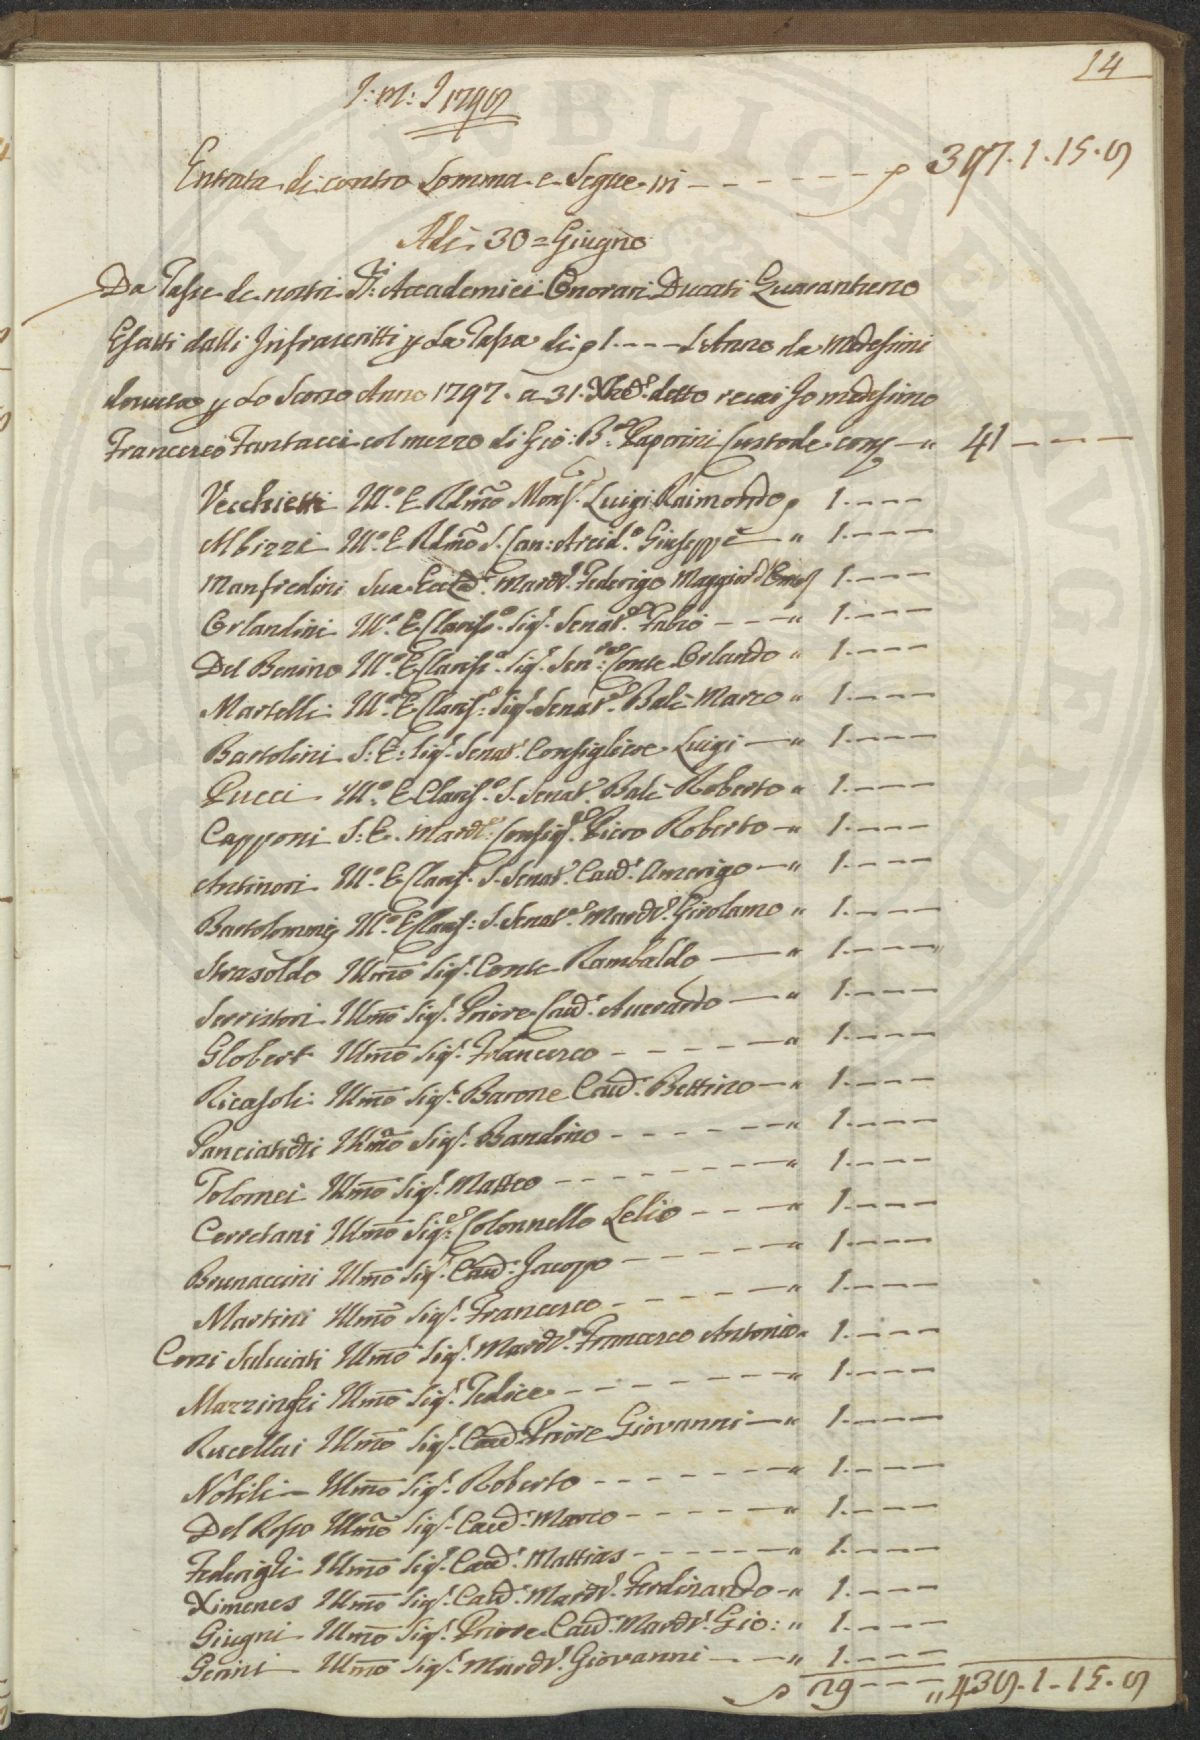 14
J: M: J 1798
Entrata di contro Somma e Segue in - - - - - - - 397. 1. 15. 9
Adi 30 = Giugno
Da Tasse de nostri SSri: Accademici Onorari Ducati Quarantuno
Esatti dalli Infrascritti p La Tassa di 1. - - - L'Anno da medesimi
dovuta p Lo Scorso Anno 1797. a 31. Xbre detto recai Io medesimo
Francesco Fantacci col mezzo di Gio: Bta Paperini Custode - " 41 - - -
Vecchietti Ill.o E Rdmo Mons.r Luigi Raimondo 1. - - -
Albizzi Ill.o E Rdmo S. Can: Arcid.o Giuseppe " 1. - - -
Manfredini Sua Ecc.a March.e Federigo Maggior 1. - - -
Orlandini Ill.o E Clariss.o Sig.r Senat.e Fabio - - - " 1. - - -
Del Benino Ill.o E Clariss.o Sig.r Sen.re: Conte Orlando " 1. - - -
Martelli Ill.o E Clariss.o: Sig.r Senat.e Balì Marco " 1. - - -
Bartolini S: E: Sig.r Senat.e Consigliere Luigi - " 1. - - -
Pucci Ill.o E Clariss.o S. Senat.e Balì Roberto " 1. - - -
Capponi S: E. March.e: Consig.re Piero Roberto - " 1. - - -
Antinori Ill.o E Clariss. S. Senat.e Cav.e Amerigo - " 1. - - -
Bartolommei Ill.o E Clariss: S. Senat.e March.e Girolamo " 1. - - -
Strasoldo Illmo Sig.r Conte Rambaldo - " 1. - - -
Serristori Illmo Sig.r Priore Cav.e Averardo - " 1. - - -
Globert Illmo Sig.r Francesco - - - - - " 1. - - -
Ricasoli Illmo Sig.r Barone Cav.e Bettino - " 1. - - -
Panciatichi Illmo Sig.r Bandino - - - - - " 1. - - -
Tolomei Illmo Sig.r Matteo - - - - - - " 1. - - -
Cerretani Illmo Sig.re: Colonnello Lelio - - - " 1. - - -
Brunaccini Illmo Sig.r Cav.e Jacopo - - - - " 1. - - -
Martini Illmo Sig.r Francesco - - - - - " 1. - - -
Corsi Salviati Illmo Sig.r March.e Francesco Antonio " 1. - - -
Mazzinghi Illmo Sig.r Felice - - - - - - " 1. - - -
Rucellai Illmo Sig.r Cav.e Priore Giovanni - " 1. - - -
Nobili - Illmo Sig.r Roberto - - - - - - " 1. - - -
Del Rosso Illmo Sig.r Cav.e Marco - - - - - " 1. - - -
Federighi Illmo Sig.r Cav.e Mattias - - - - - " 1. - - -
Ximenes Illmo Sig.r Cav.e March.e Ferdinando - " 1. - - -
Giugni Illmo Sig.r Priore Cav.e March.e Gio: " 1. - - -
Gerini Illmo Sig.r March.e Giovanni - - " 1. - - -
29 - - - " 439. 1. 15. 9